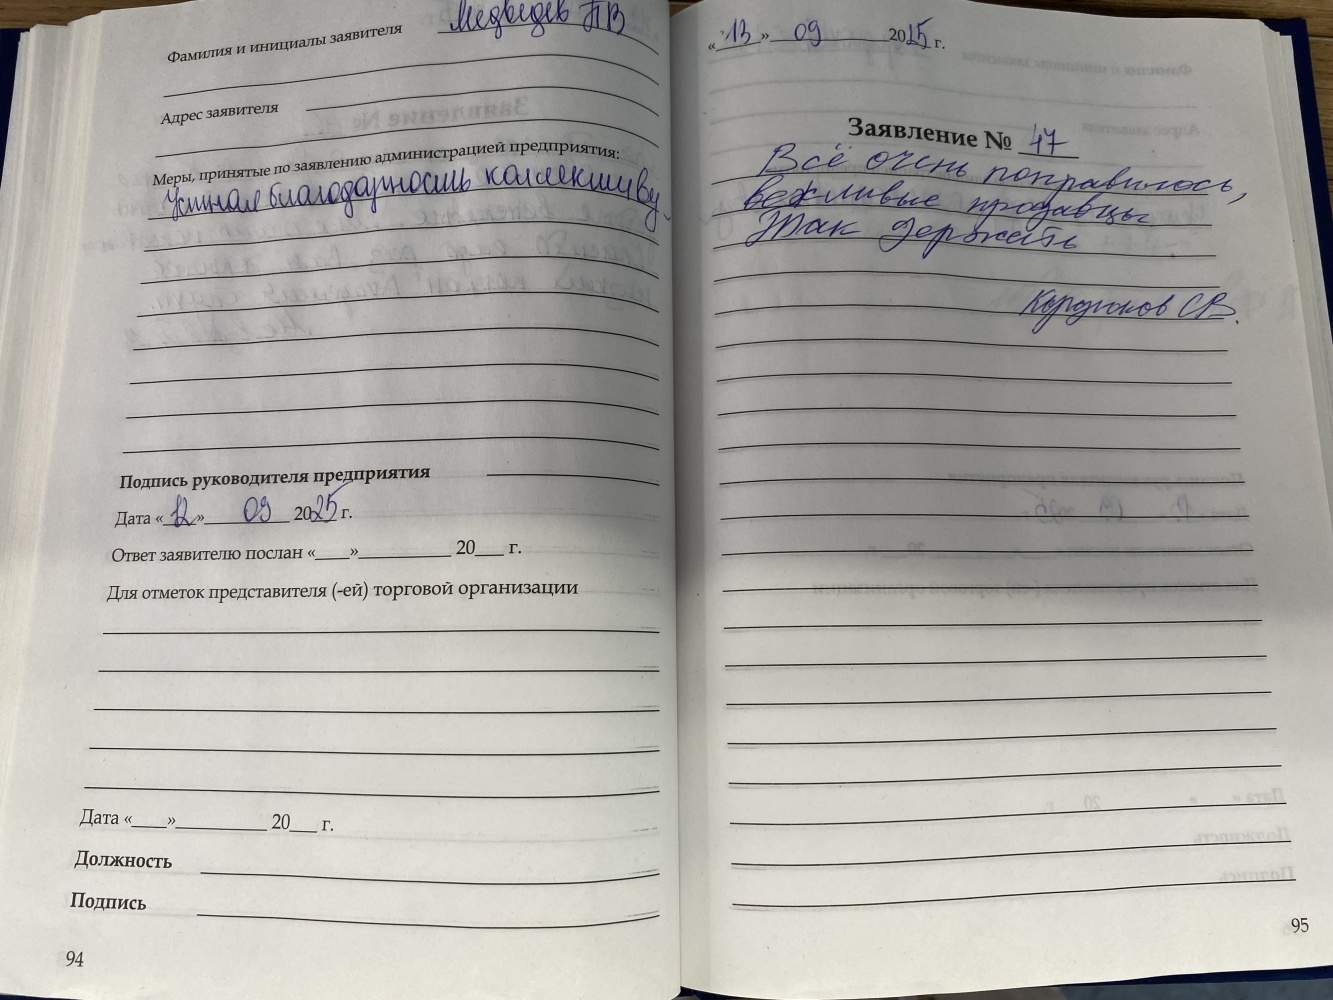 Фамилия и инициалы заявителя Медведев ПВ
Адрес заявителя
Меры, принятые по заявлению администрацией предприятия:
Устная благодарность коллективу
Подпись руководителя предприятия
Дата «12» 09 2025 г.
Ответ заявителю послан «____»__________ 20___ г.
Для отметок представителя (-ей) торговой организации
Дата «____»__________ 20___ г.
Должность
Подпись
94
«13» 09 2025 г.
Заявление № 47
Всё очень понравилось,
вежливые продавцы
Так держать
СВ.
95